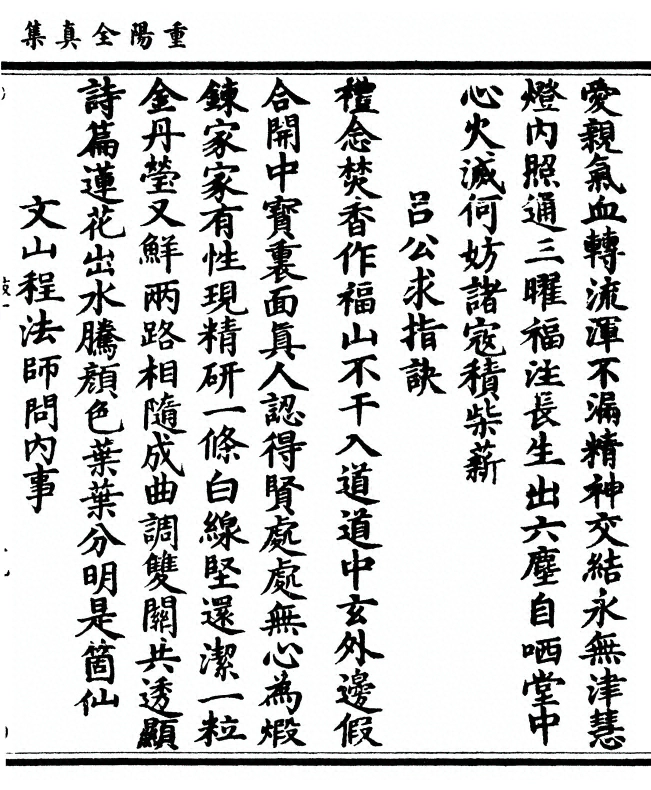 重陽全真集
愛親氣血轉流渾不漏精神交結永無津慧
燈內照通三曜福注長生出六塵自哂堂中
心火滅何妨諸寇積柴薪
呂公求指訣
禮念焚香作福山不干入道道中玄外邊假
合開中寶裏面真人認得賢處處無心為煅
鍊家家有性現精研一條白線堅還潔一粒
金丹瑩又鮮兩路相隨成曲調雙關共透顯
詩篇蓮花出水騰顏色葉葉分明是箇仙
文山程法師問內事